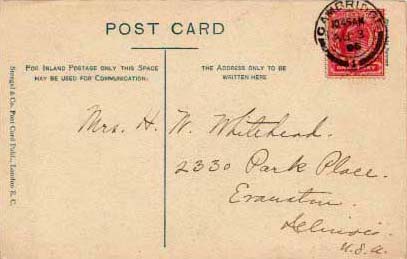 POST CARD
FOR INLAND POSTAGE ONLY THIS SPACE
MAY BE USED FOR COMMUNICATION.
THE ADDRESS ONLY TO BE
WRITTEN HERE
Stengel & Co. Post Card Publs., London E. C.
CAMBRIDGE
10.45 AM
3
06
1
Mrs. H. W. Whitehead.
2330 Park Place.
Evanston.
Illinois.
U.S.A.